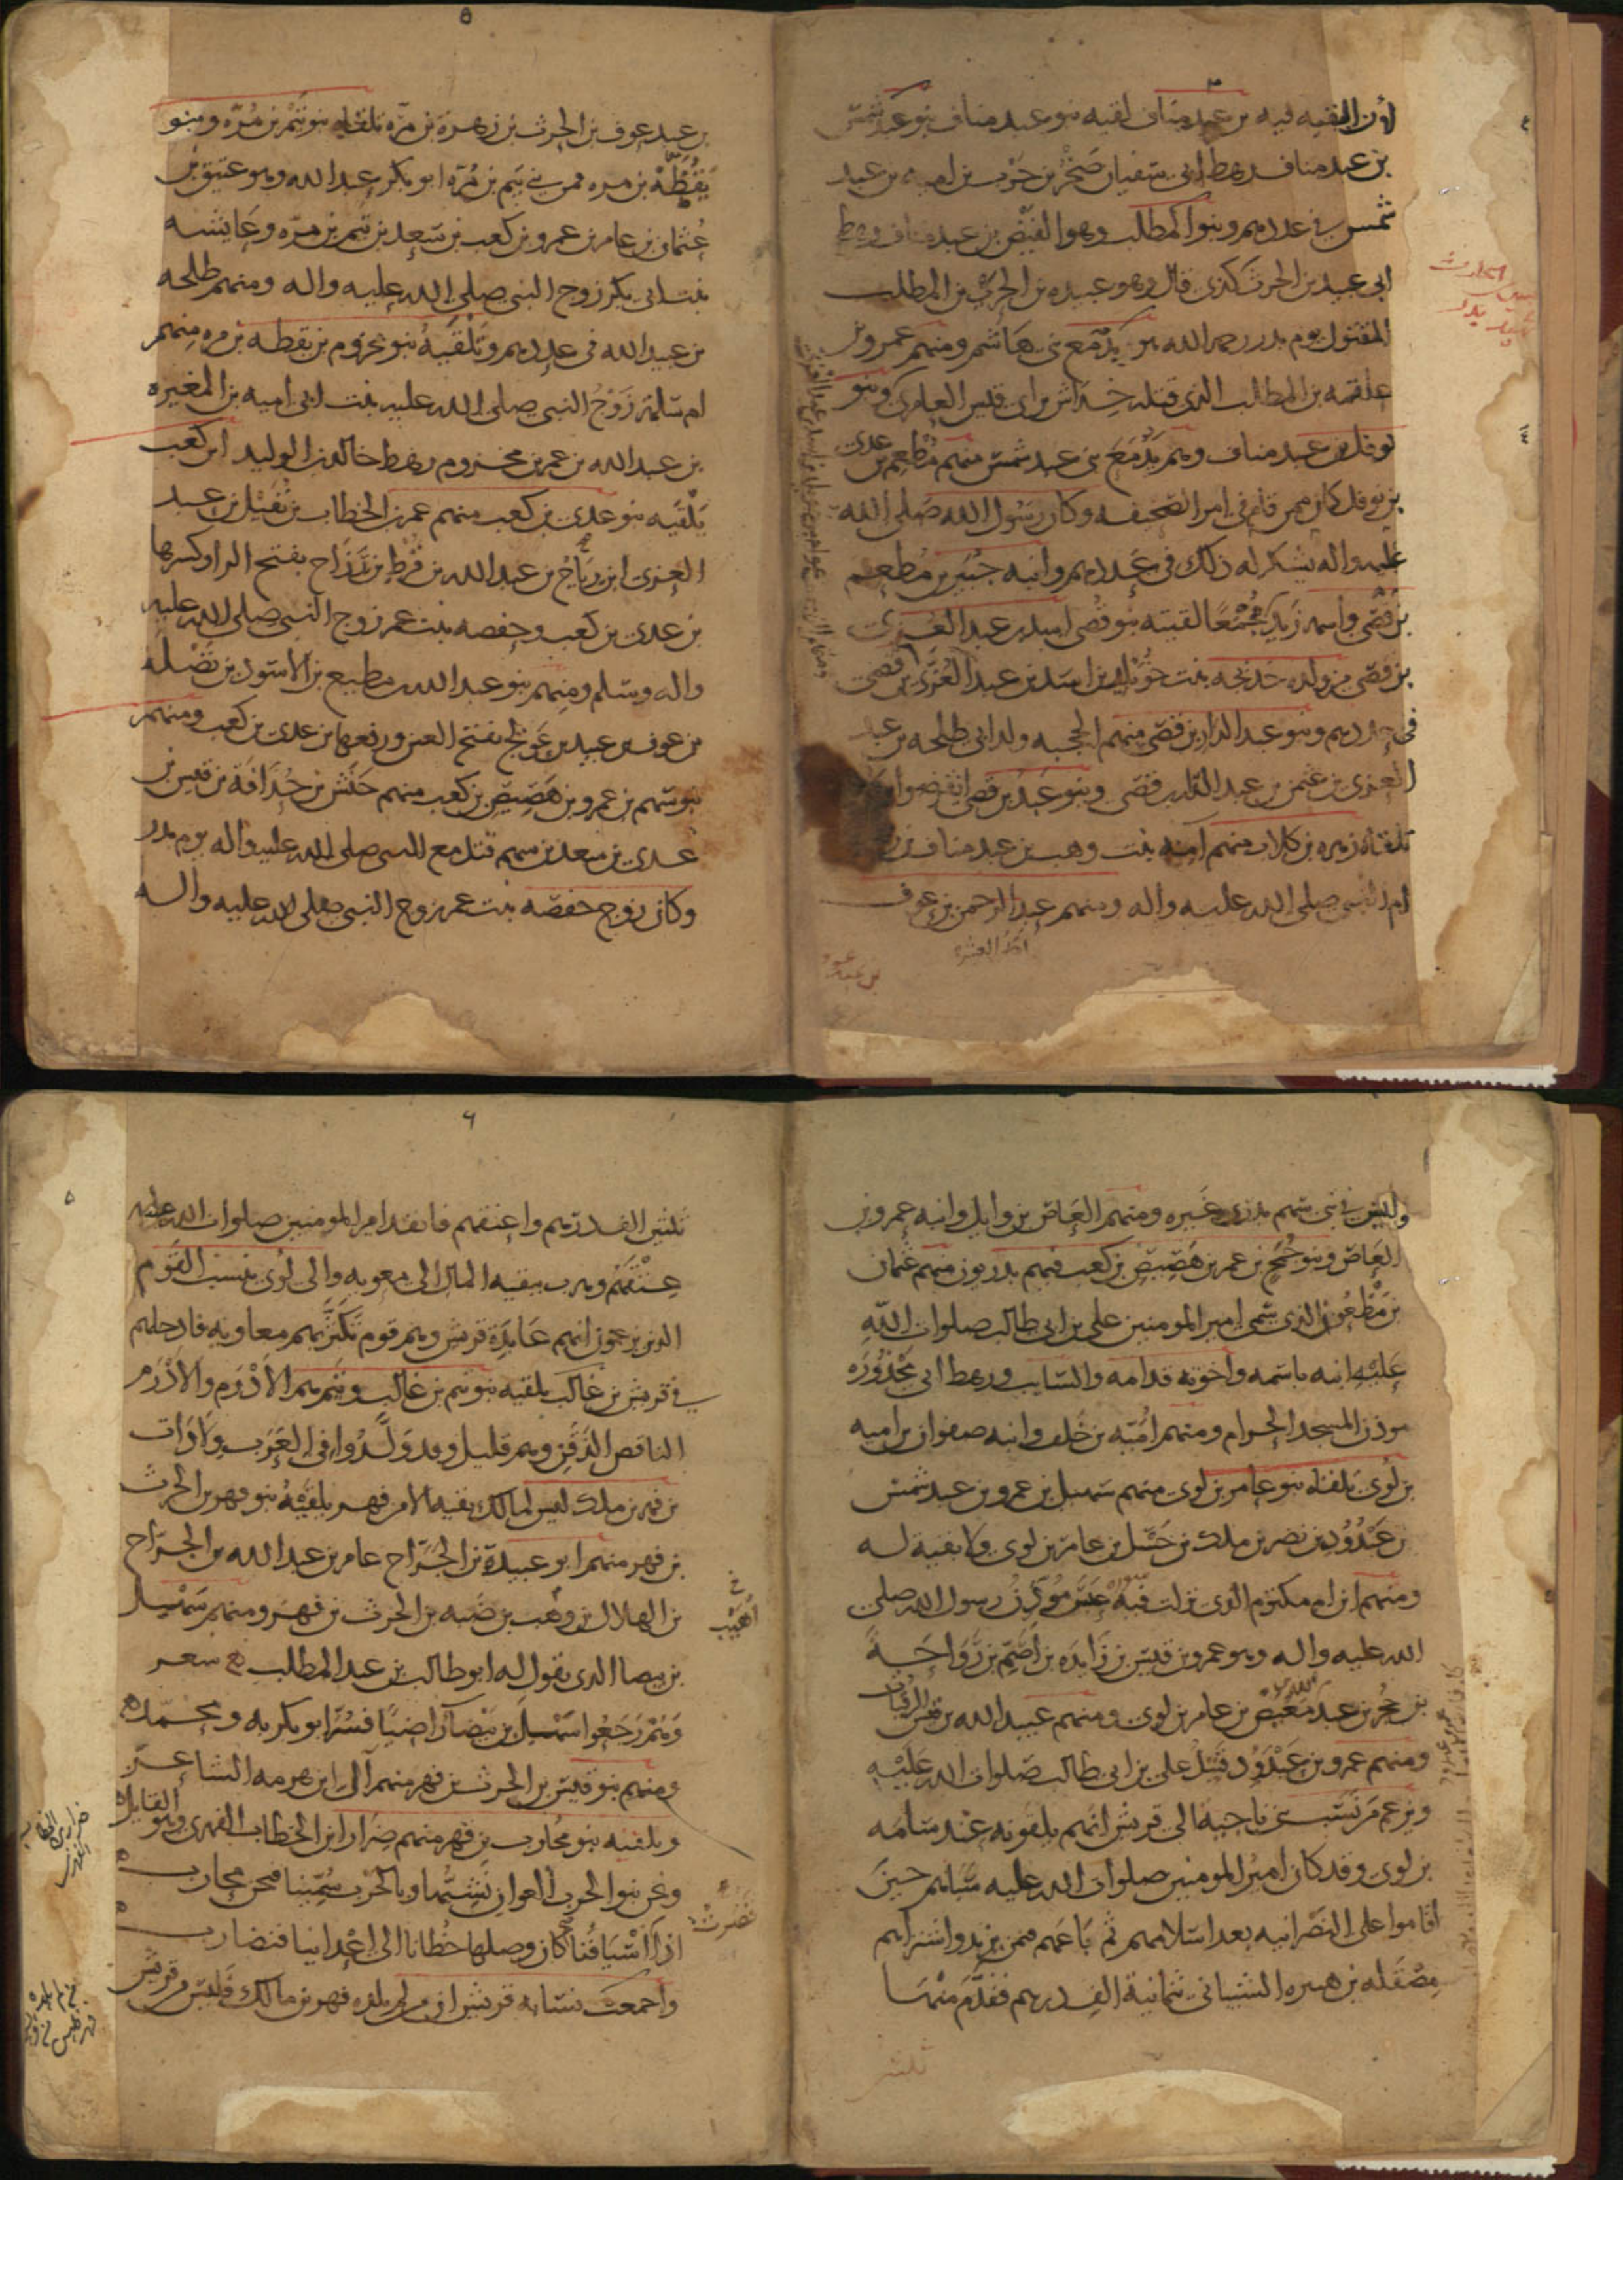 لؤى الفقيه فيه بن عبد مناف لقيه بنو عبد مناف بنو عبد شمس
بن عبد مناف رهط ابى سفيان صخر بن حرب بن اميه بن عبد
شمس فى عددهم وبنو المطلب وهو الفيض بن عبد مناف رهط
ابى عبيد بن الحرث كذى قال وهو عبيده بن الحرث بن المطلب
المقتول يوم بدر رحمه الله يد مع بنى هاشم ومنهم عمرو بن
علقمه بن المطلب الذى قتله خداش بن ابى قيس العامرى وبنو
نوفل بن عبد مناف وهم يد مع بنى عبد شمس منهم مطعم بن عدى
بن نوفل كان ممن قام فى امر الصحيفه وكان رسول الله صلى الله
عليه واله يشكر له ذلك فى عددهم وابنه جبير بن مطعم
بن قصى واسمه زيد مجمعا لقيته بنو قصى اسد بن عبد العزى
بن قصى من ولده خديجه بنت خويلد بن اسد بن عبد العزى بن قصى
فى عددهم وبنو عبد الدار بن قصى منهم الحجبه ولد ابى طلحه بن عبد
العزى بن عثمن بن عبد الدار بن قصى وبنو عبد بن قصى انقرضوا
تلقاه زهره بن كلاب منهم آمنه بنت وهب بن عبد مناف بن
ام النبى صلى الله عليه واله ومنهم عبد الرحمن بن عوف
احد العشره
٥
بن عبد عوف بن الحرث بن زهرة بن مرّه تلقاه بنو تيم بن مُرّه وبنو
يَقَظَة بن مره فمن بنى تيم بن مُرّه ابو بكر عبد الله وهو عتيق بن
عثمان بن عامر بن عمرو بن كعب بن سعد بن تيم بن مرّه وعايشه
بنت ابى بكر زوج النبى صلى الله عليه واله ومنهم طلحه
بن عبيد الله فى عددهم وتلقيه بنو مخزوم بن يقظه بن مره منهم
ام سلمة زوج النبى صلى الله عليه بنت ابى اميه بن المغيره
بن عبد الله بن عمر بن مخزوم رهط خالد بن الوليد ابن كعب
يلقيه بنو عدى بن كعب منهم عمر بن الخطاب بن نفيل بن عبد
العزى ابن رياح بن عبد الله بن قرط بن رزاح بفتح الرا وكسرها
بن عدى بن كعب وحفصه بنت عمر زوج النبى صلى الله عليه
واله وسلم ومنهم بنو عبد الله بن مطيع بن الاسود بن نضله
بن عوف بن عبيد بن عويج بفتح العين ورفعها بن عدى بن كعب ومنهم
بنو سهم بن عمرو بن هصيص بن كعب منهم خنيس بن حذافة بن قيس بن
عدى بن سعد بن سهم قتل مع النبى صلى الله عليه واله يوم بدر
وكان زوج حفصه بنت عمر زوج النبى صلى الله عليه واله
وليس فى بنى سهم بدرى غيره ومنهم العاص بن وايل وابنه عمرو بن
العاص وبنو جمح بن عمر بن هصيص بن كعب فيهم بدريون منهم عثمان
بن مظعون الذى سمى امير المومنين على بن ابى طالب صلوات الله
عليه ابنه باسمه واخوته قدامه والسايب ورهط ابى محذوره
موذن المسجد الحرام ومنهم اميّه بن خلف وابنه صفوان بن اميه
بن لوى تلقاه بنو عامر بن لوى منهم سهيل بن عمرو بن عبد شمس
بن عبد ود بن نصر بن ملك بن حسل بن عامر بن لوى ولا بقية له
ومنهم ابن ام مكتوم الذى نزلت فيه عبس موذن رسول الله صلى
الله عليه واله وهو عمرو بن قيس بن زايده بن اصم بن رواحة
بن حجر بن عبد معيص بن عامر بن لوى ومنهم عبيد الله بن قيس الرقيات
ومنهم عمرو بن عبد ود قتل على بن ابى طالب صلوات الله عليه
ويزعم من نسب بنى ناجية الى قريش انهم يلقونه عند سامه
بن لوى وقد كان امير المومنين صلوات الله عليه سباهم حين
اقاموا على النصرانيه بعد اسلامهم ثم باعهم فمن يزيد واشتراهم
مصقله بن هبيره الشيبانى ثمانية الف درهم فقدّم منها
ثلثين
٦
ثلثين الف درهم واعتقهم فانفد امير المومنين صلوات الله عليه
عتقهم وهرب ببقيه المال الى معويه والى لوى ينسب القوم
الذين يزعمون انهم عايذة قريش وهم قوم تكثر بهم معاويه فادخلهم
فى قريش بن غالب يلقيه بنو تيم بن غالب وتيم هم الادرم والادرم
الناقص الذقن وهم قليل وقد ولدوا فى العرب ولادات
بن فهر بن ملك ليس لمالك بقيه الا من فهر يلقيه بنو فهر بن الحرث
بن فهر منهم ابو عبيدة بن الجرّاح عامر بن عبد الله بن الجراح
بن الهلال بن وهب بن ضبه بن الحرث بن فهر ومنهم سهيل
أهيب
بن بيضا الذى يقول له ابو طالب بن عبد المطلب شعر
وهم رجعوا سهيل بن بيضآ راضيًا فسُرّ ابو بكر به ومحمّد
ومنهم بنو قيس بن الحرث بن فهر منهم آل ابن هرمه الشاعر
ويلقيه بنو محارب بن فهر منهم ضرار ابن الخطاب الفهرى وهو القايل
ونحن بنو الحرب العوان نشبّها وبالحرب سُمّينا فنحن محارب
اذا اسيافنا كان وصلها خطانا الى اعداينا فنضارب
قصرت
واجمعت نسابه قريش ان من لم يلده فهر بن مالك فليس من قريش